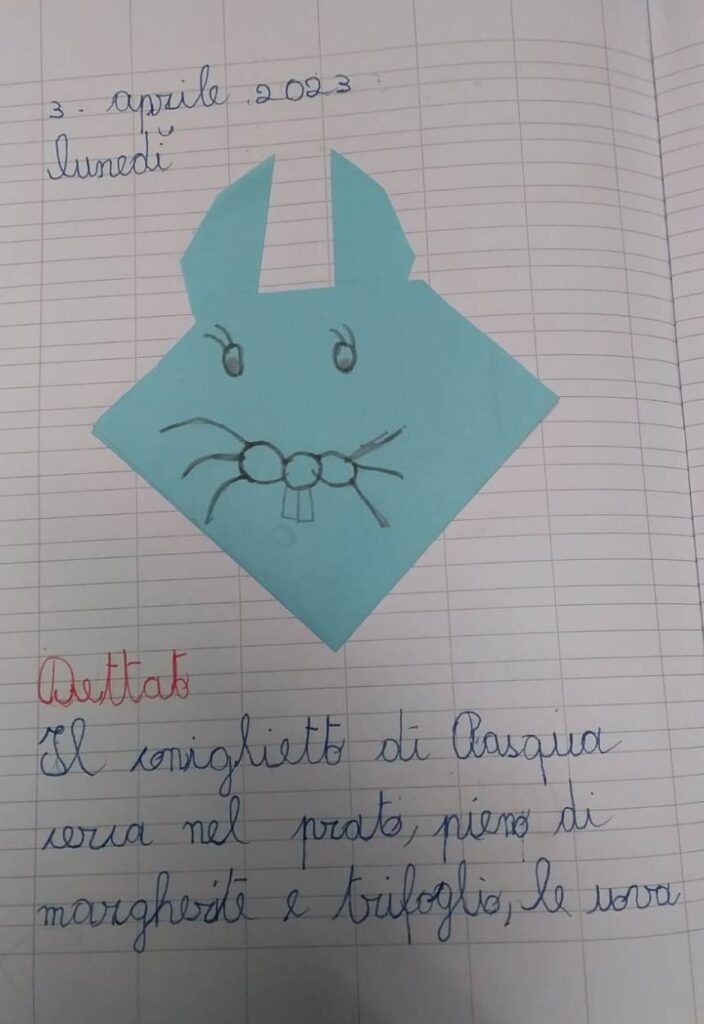 3. aprile 2023
lunedì
Dettato
Il coniglietto di Pasqua
cerca nel prato, pieno di
margherite e trifoglio, le uova